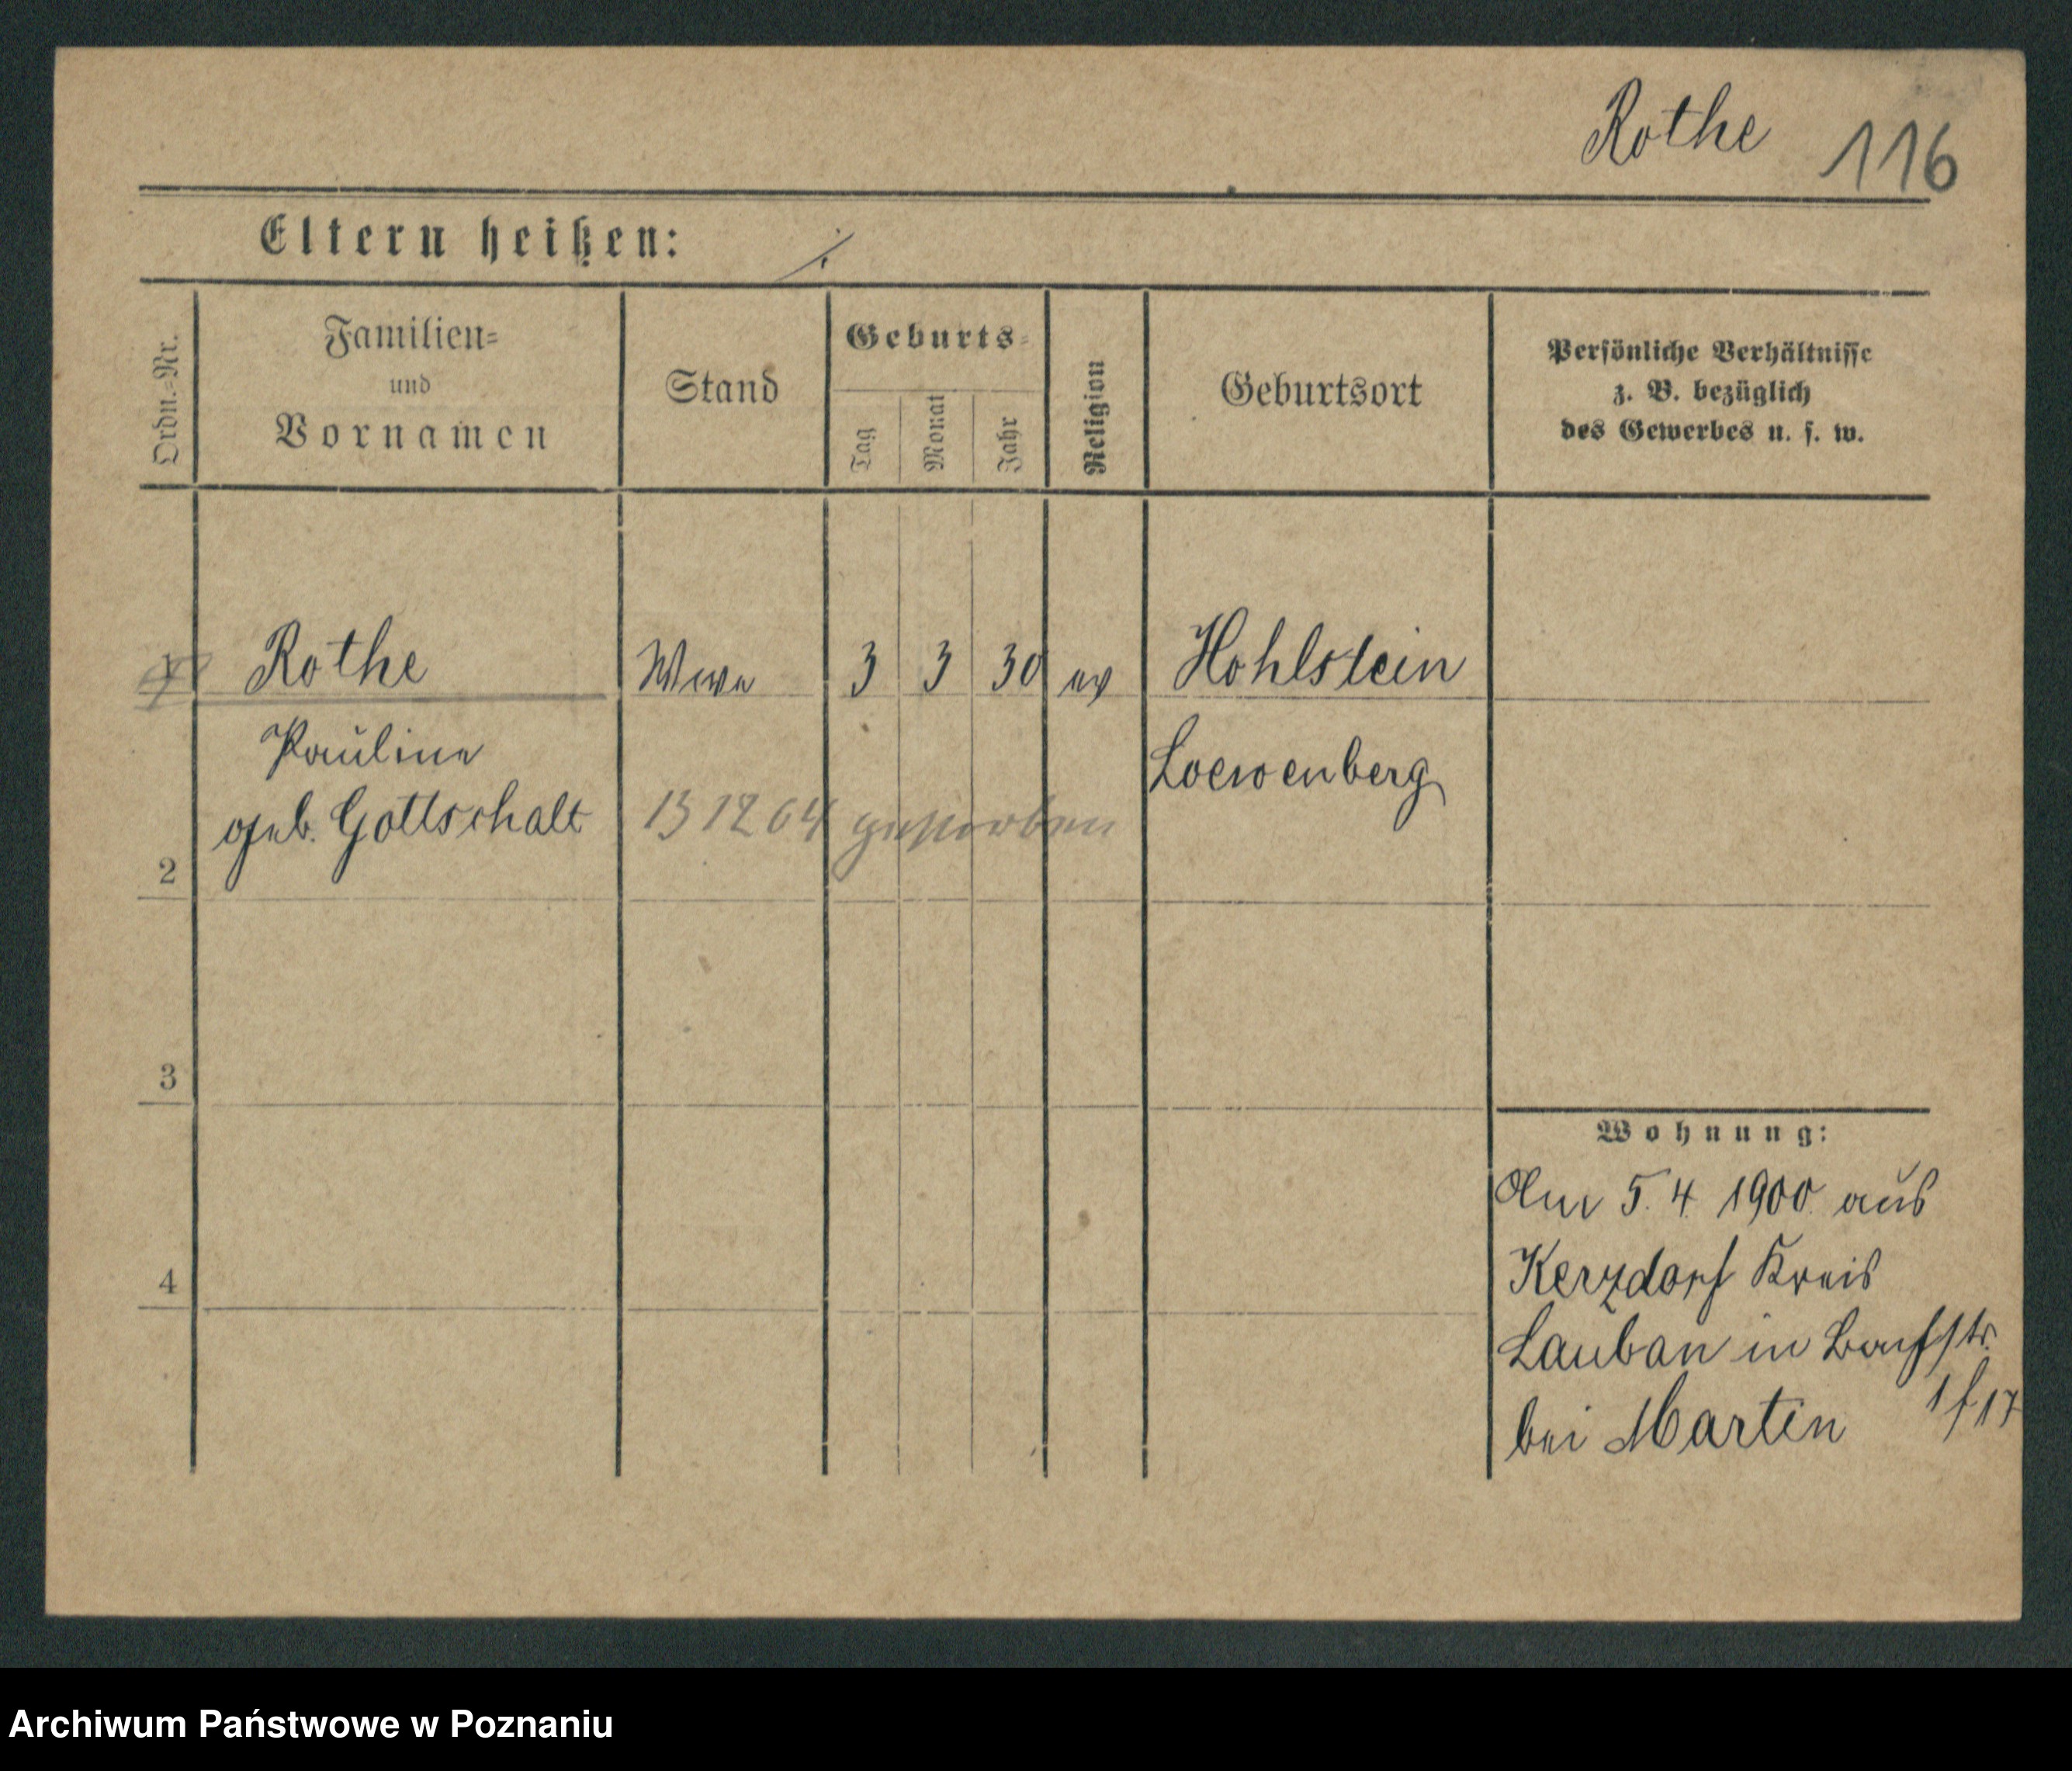 Rothe 116
Eltern heißen: ·/.
Ordn.-Nr.
Familien-
und
Vornamen
Stand
Geburts-
Tag
Monat
Jahr
Religion
Geburtsort
Persönliche Verhältnisse
z. B. bezüglich
des Gewerbes u. s. w.
1 Rothe Wwe 3 3 30 ev Hohlstein
Pauline Loewenberg
geb. Gottschalt 13 12 04 gestorben
2
3
4
Wohnung:
Am 5. 4. 1900 aus
Kerzdorf Kreis
Lauban in
bei Martin